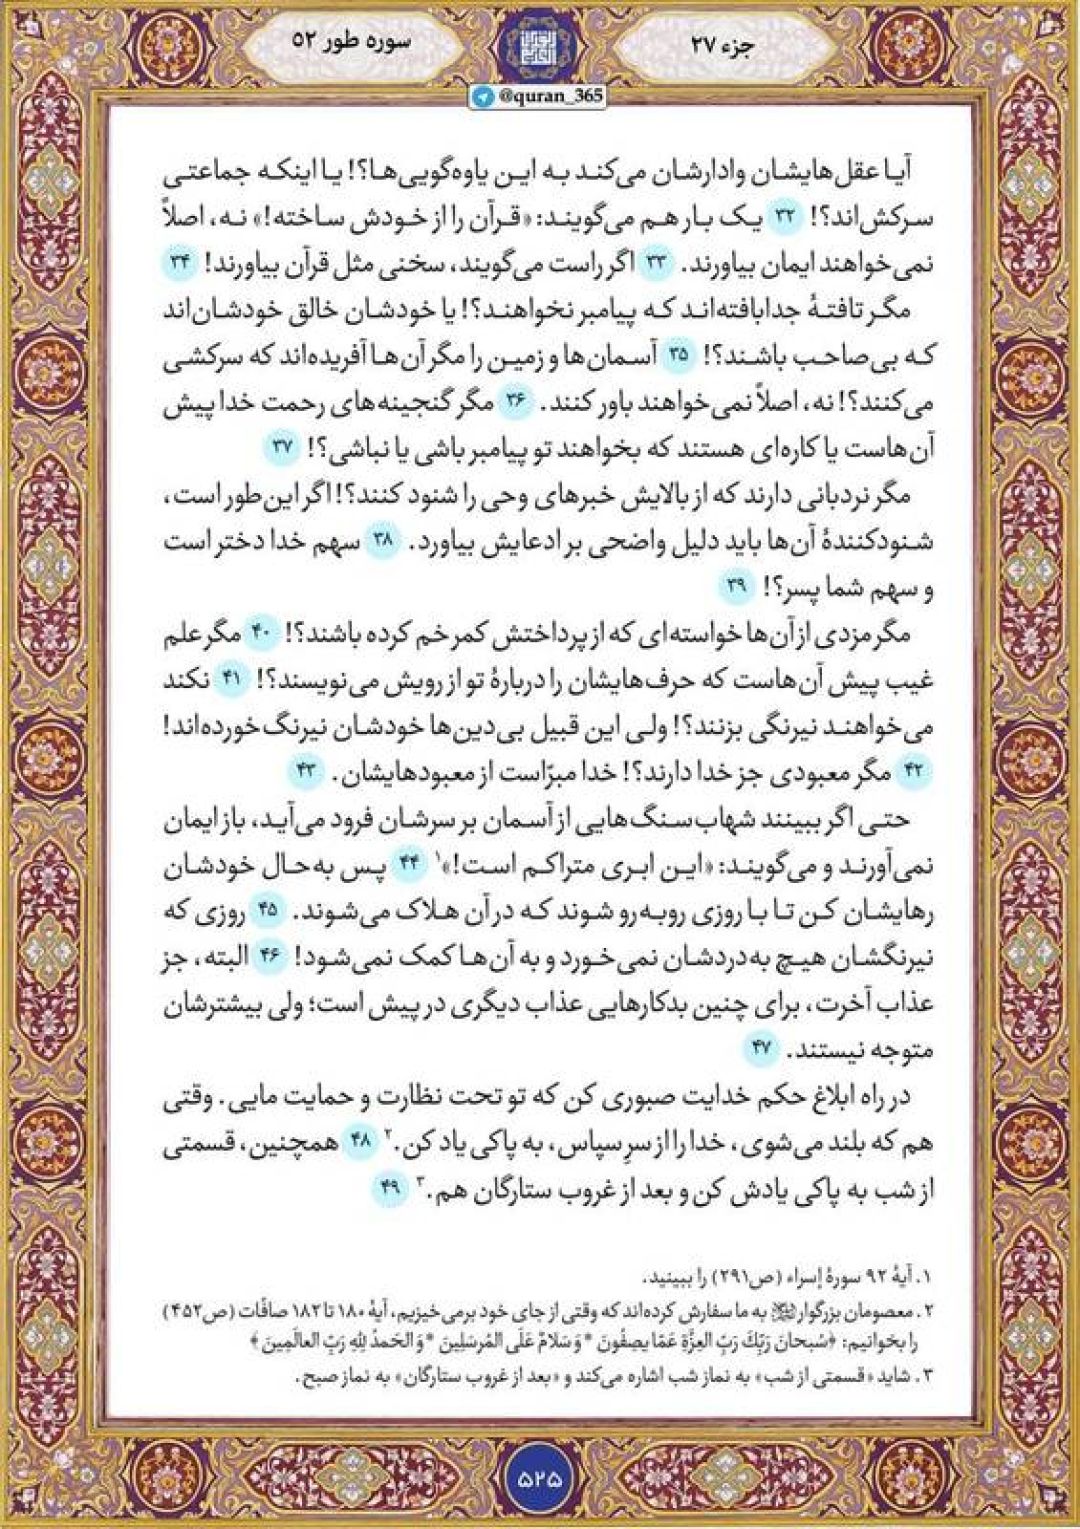 جزء ۲۷
سوره طور ۵۲
@quran_365
آیا عقل‌هایشان وادارشان می‌کند به این یاوه‌گویی‌ها؟! یا اینکه جماعتی
سرکش‌اند؟! ۳۲ یک بار هم می‌گویند: «قرآن را از خودش ساخته!» نه، اصلاً
نمی‌خواهند ایمان بیاورند. ۳۳ اگر راست می‌گویند، سخنی مثل قرآن بیاورند! ۳۴
مگر تافتهٔ جدابافته‌اند که پیامبر نخواهند؟! یا خودشان خالق خودشان‌اند
که بی‌صاحب باشند؟! ۳۵ آسمان‌ها و زمین را مگر آن‌ها آفریده‌اند که سرکشی
می‌کنند؟! نه، اصلاً نمی‌خواهند باور کنند. ۳۶ مگر گنجینه‌های رحمت خدا پیش
آن‌هاست یا کاره‌ای هستند که بخواهند تو پیامبر باشی یا نباشی؟! ۳۷
مگر نردبانی دارند که از بالایش خبرهای وحی را شنود کنند؟! اگر این‌طور است،
شنودکنندهٔ آن‌ها باید دلیل واضحی بر ادعایش بیاورد. ۳۸ سهم خدا دختر است
و سهم شما پسر؟! ۳۹
مگر مزدی از آن‌ها خواسته‌ای که از پرداختش کمر خم کرده باشند؟! ۴۰ مگر علم
غیب پیش آن‌هاست که حرف‌هایشان را دربارهٔ تو از رویش می‌نویسند؟! ۴۱ نکند
می‌خواهند نیرنگی بزنند؟! ولی این قبیل بی‌دین‌ها خودشان نیرنگ‌خورده‌اند!
۴۲ مگر معبودی جز خدا دارند؟! خدا مبرّاست از معبودهایشان. ۴۳
حتی اگر ببینند شهاب‌سنگ‌هایی از آسمان بر سرشان فرود می‌آید، باز ایمان
نمی‌آورند و می‌گویند: «این ابری متراکم است!»۱ ۴۴ پس به‌حال خودشان
رهایشان کن تا با روزی روبه‌رو شوند که در آن هلاک می‌شوند. ۴۵ روزی که
نیرنگشان هیچ به‌دردشان نمی‌خورد و به آن‌ها کمک نمی‌شود! ۴۶ البته، جز
عذاب آخرت، برای چنین بدکارهایی عذاب دیگری در پیش است؛ ولی بیشترشان
متوجه نیستند. ۴۷
در راه ابلاغ حکم خدایت صبوری کن که تو تحت نظارت و حمایت مایی. وقتی
هم که بلند می‌شوی، خدا را از سرِ سپاس، به پاکی یاد کن.۲ ۴۸ همچنین، قسمتی
از شب به پاکی یادش کن و بعد از غروب ستارگان هم.۳ ۴۹
۱. آیهٔ ۹۲ سورهٔ إسراء (ص۲۹۱) را ببینید.
۲. معصومان بزرگوار به ما سفارش کرده‌اند که وقتی از جای خود برمی‌خیزیم، آیهٔ ۱۸۰ تا ۱۸۲ صافّات (ص۴۵۲)
را بخوانیم: ﴿سُبحانَ رَبِّكَ رَبِّ العِزَّةِ عَمّا يصِفُونَ * وَ سَلامٌ عَلَى المُرسَلِينَ * وَ الحَمدُ لِلهِ رَبِّ العالَمِينَ﴾
۳. شاید «قسمتی از شب» به نماز شب اشاره می‌کند و «بعد از غروب ستارگان» به نماز صبح.
۵۲۵